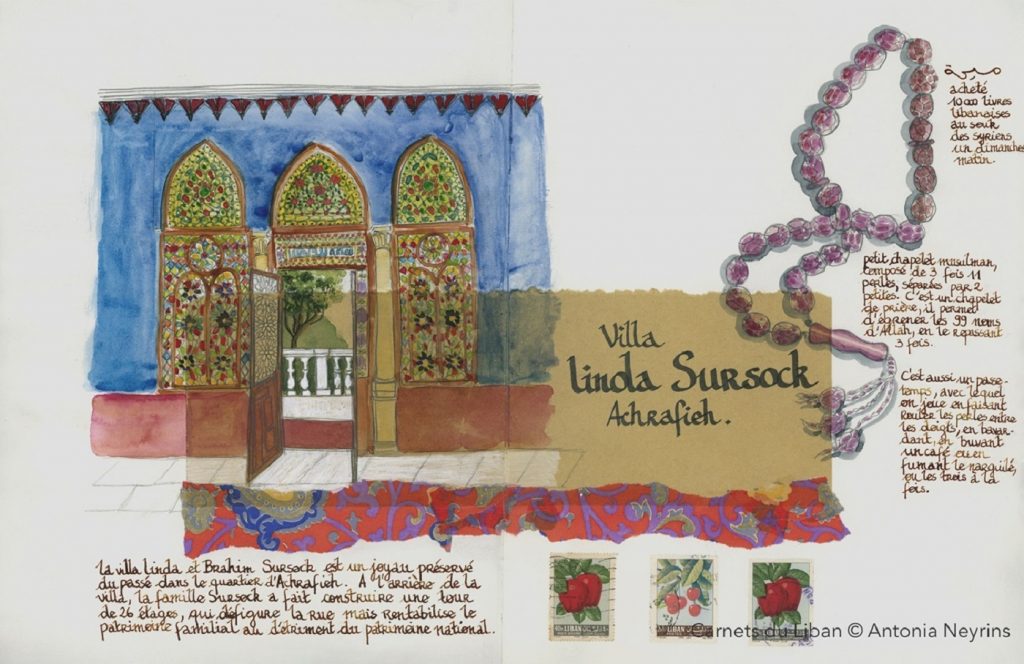 مسبحة
acheté
10000 livres
libanaises
au souk
des syriens
un dimanche
matin.
petit chapelet musulman,
composé de 3 fois 11
perles, séparées par 2
petites. C'est un chapelet
de prière, il permet
d'égrener les 99 noms
d'Allah, en le repassant
3 fois.
C'est aussi un passe-
temps, avec lequel
on joue en faisant
rouler les perles entre
les doigts, en bavar-
dant, en buvant
un café ou en
fumant le narguilé,
ou les trois à la
fois.
Villa
Linda Sursock
Achrafieh.
la villa Linda et Brahim Sursock est un joyau préservé
du passé dans le quartier d'Achrafieh. A l'arrière de la
villa, la famille Sursock a fait construire une tour
de 26 étages, qui défigure la rue mais rentabilise le
patrimoine familial au détriment du patrimoine national.
LIBAN
LIBAN
LIBAN
Carnets du Liban © Antonia Neyrins